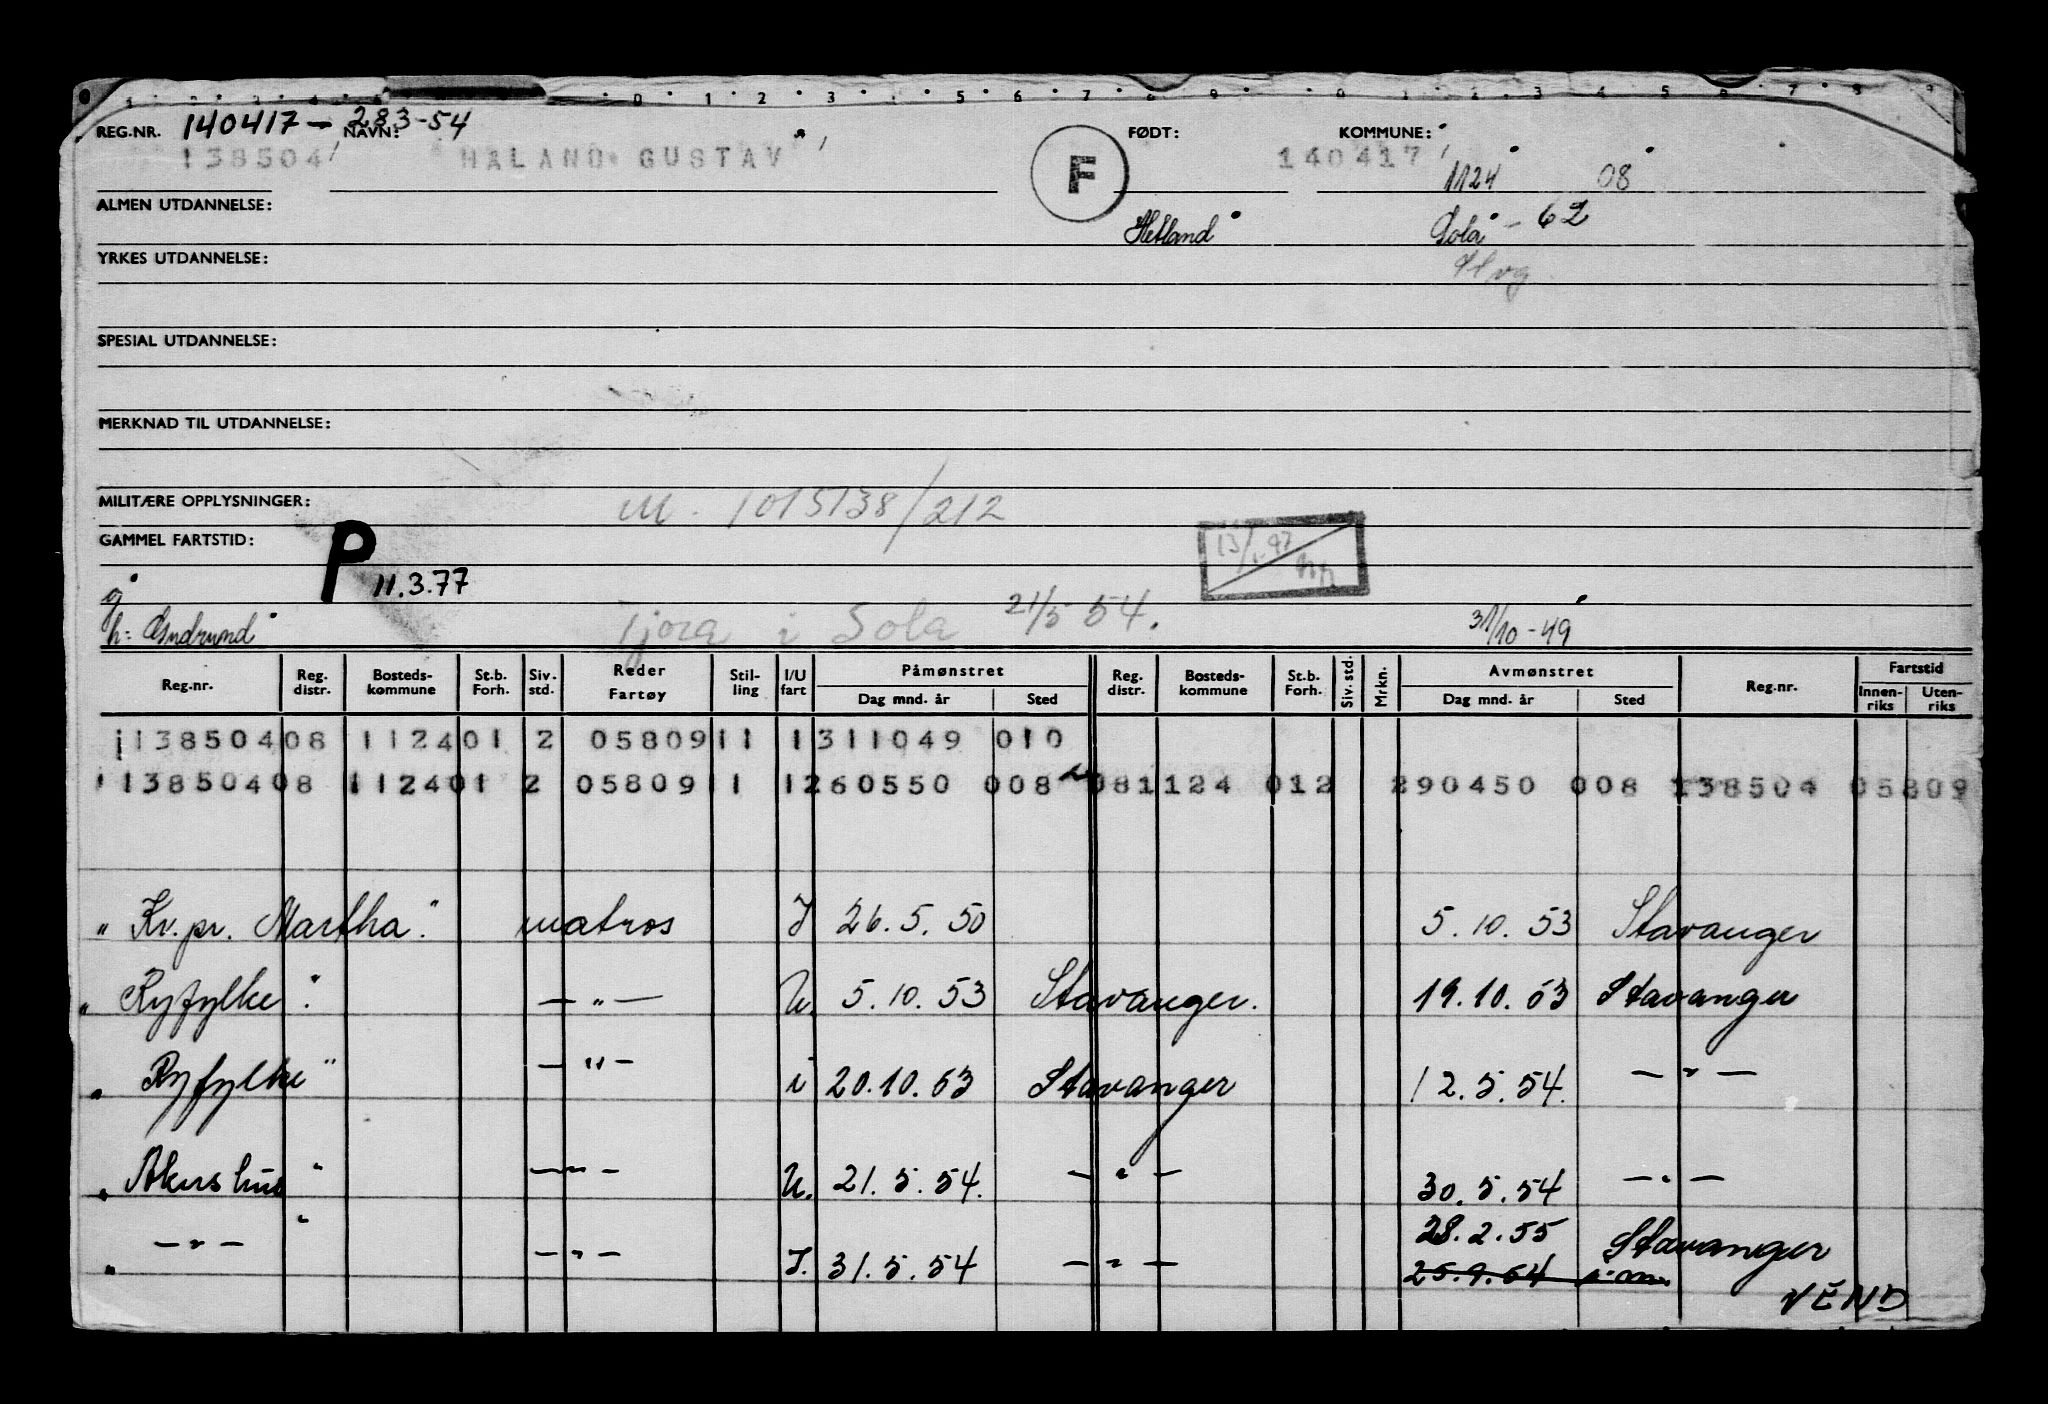 REG.NR. 140417-283-54 NAVN: FØDT: KOMMUNE:
138504 HALAND GUSTAV F 140417 1124 08
ALMEN UTDANNELSE: Hetland Sola - 62
YRKES UTDANNELSE:
SPESIAL UTDANNELSE:
MERKNAD TIL UTDANNELSE:
MILITÆRE OPPLYSNINGER: M. 1015138/212
GAMMEL FARTSTID:
P 11.3.77
g
h: Gudrund Tjora i Sola 21/5 54. 31/10-49
Reg.nr. Reg. distr. Bosteds-kommune St.b. Forh. Siv. std. Reder Fartøy Stil-ling I/U fart Påmønstret Dag mnd. år Sted Reg. distr. Bosteds-kommune St.b. Forh. Siv. std. Mrkn. Avmønstret Dag mnd. år Sted Reg.nr. Fartstid Innen-riks Uten-riks
113850408 112401 2 0580911 1311049 010
113850408 112401 2 0580911 1260550 008 081124 012 290450 008 138504 05809
" Kv.pr. Martha." matros I 26.5.50 5.10.53 Stavanger
" Ryfylke " — " — U. 5.10.53 Stavanger. 19.10.53 Stavanger
" Ryfylke " — " — i 20.10.53 Stavanger 12.5.54. — " —
" Akershus " — " — U. 21.5.54. — " — 30.5.54 — " —
28.2.55 Stavanger
" — " — " — " — I. 31.5.54 — " — 25.9.54
VEND